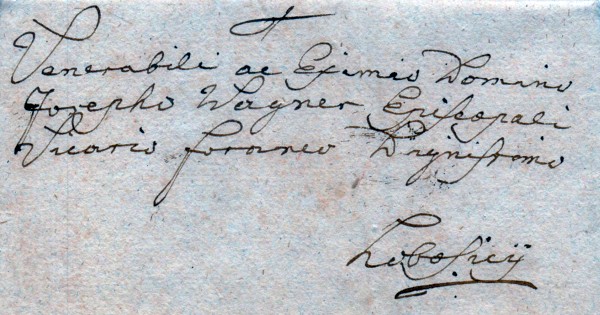 Venerabili ac Eximio Domino
Josepho Wagner Episcopali
Vicario foraneo Dignissimo
Lobosicij